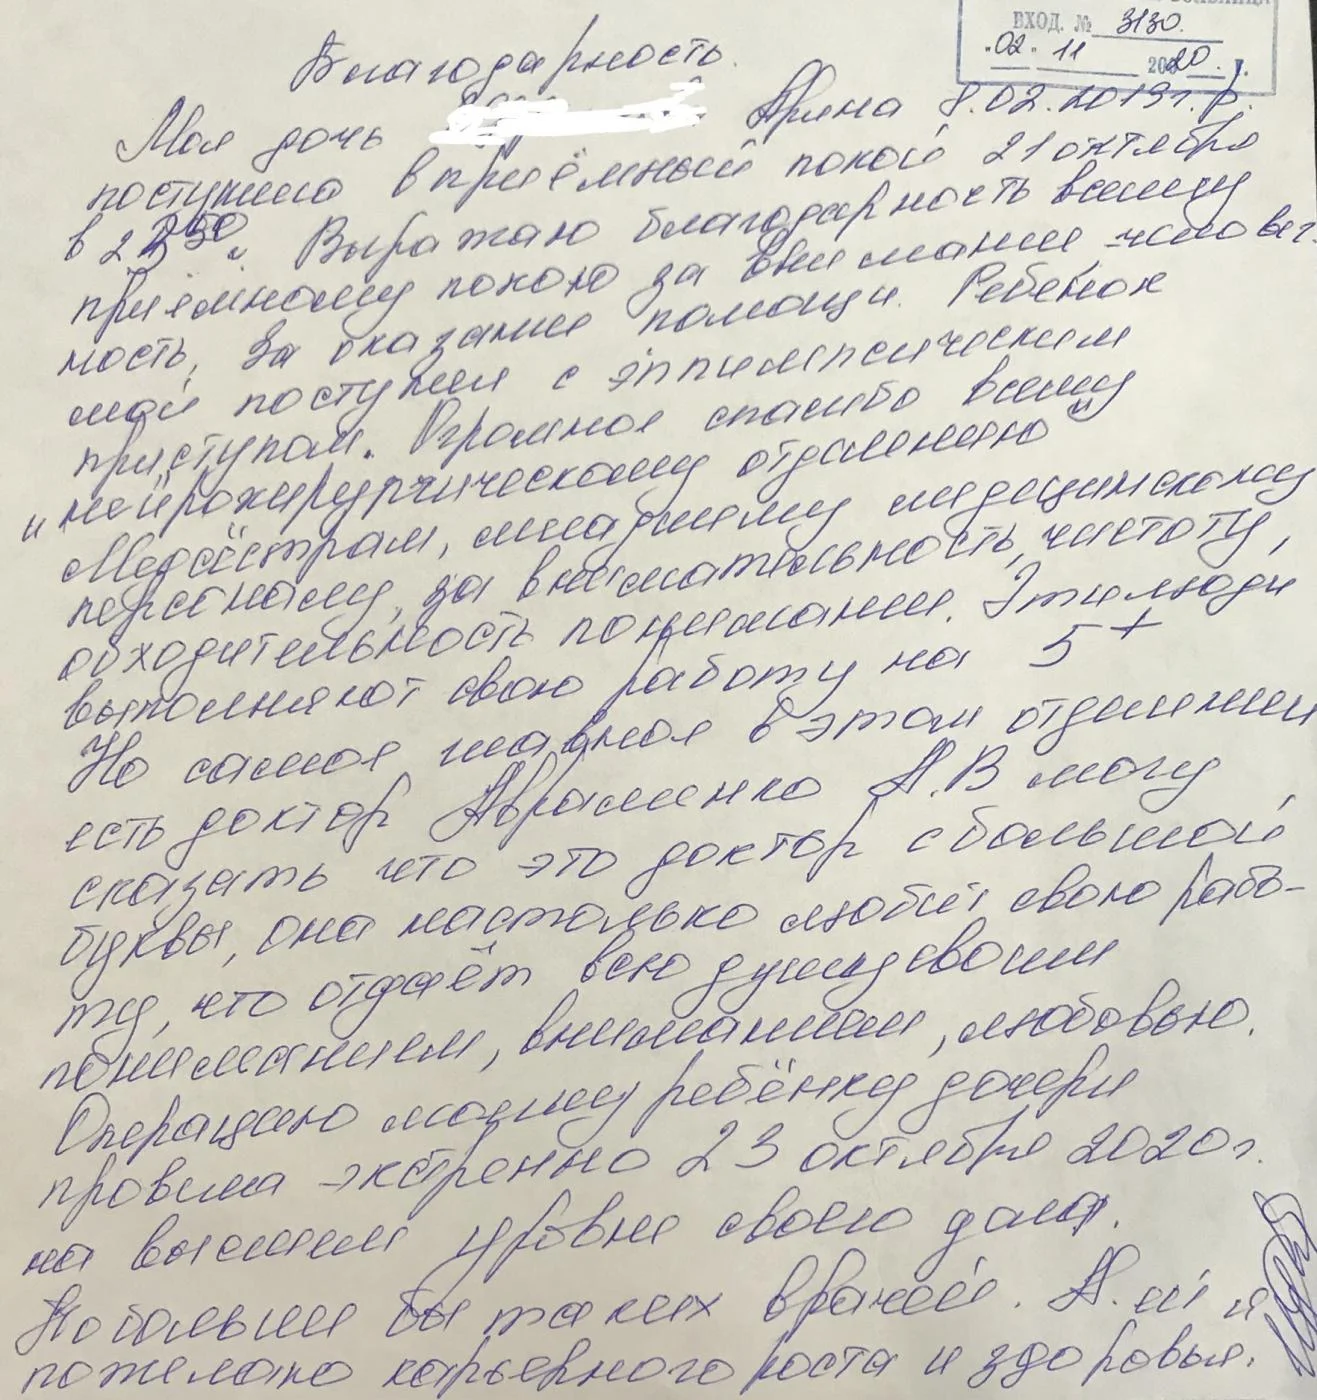 ВХОД. № 3130.
"02" 11 2020 г.
Благодарность.
Моя дочь Арина 8.02.2019г.р.
поступила в приёмный покой 21 октября
в 23 50. Выражаю благодарность всему
приёмному покою за внимание, человеч-
ность, за оказание помощи. Ребёнок
мой поступил с эппилепсическим
приступом. Огромное спасибо всему
"нейрохирургическому отделению"
Медсёстрам, младшему медецинскому
персоналу, за внимательность, чистоту,
обходительность понимание. Эти люди
выполняют свою работу на 5+
Но самое главное в этом отделении
есть доктор Авраменко А.В могу
сказать что это доктор с большой
буквы, она настолько любит свою рабо-
ту, что отдаёт всю душу своим
пониманием, вниманием, любовью.
Операцию моему ребёнку дочери
провела экстренно 23 октября 2020г.
на высшем уровне своего дела.
Побольше бы таких врачей. А.
пожелаю карьерного роста и здоровья.